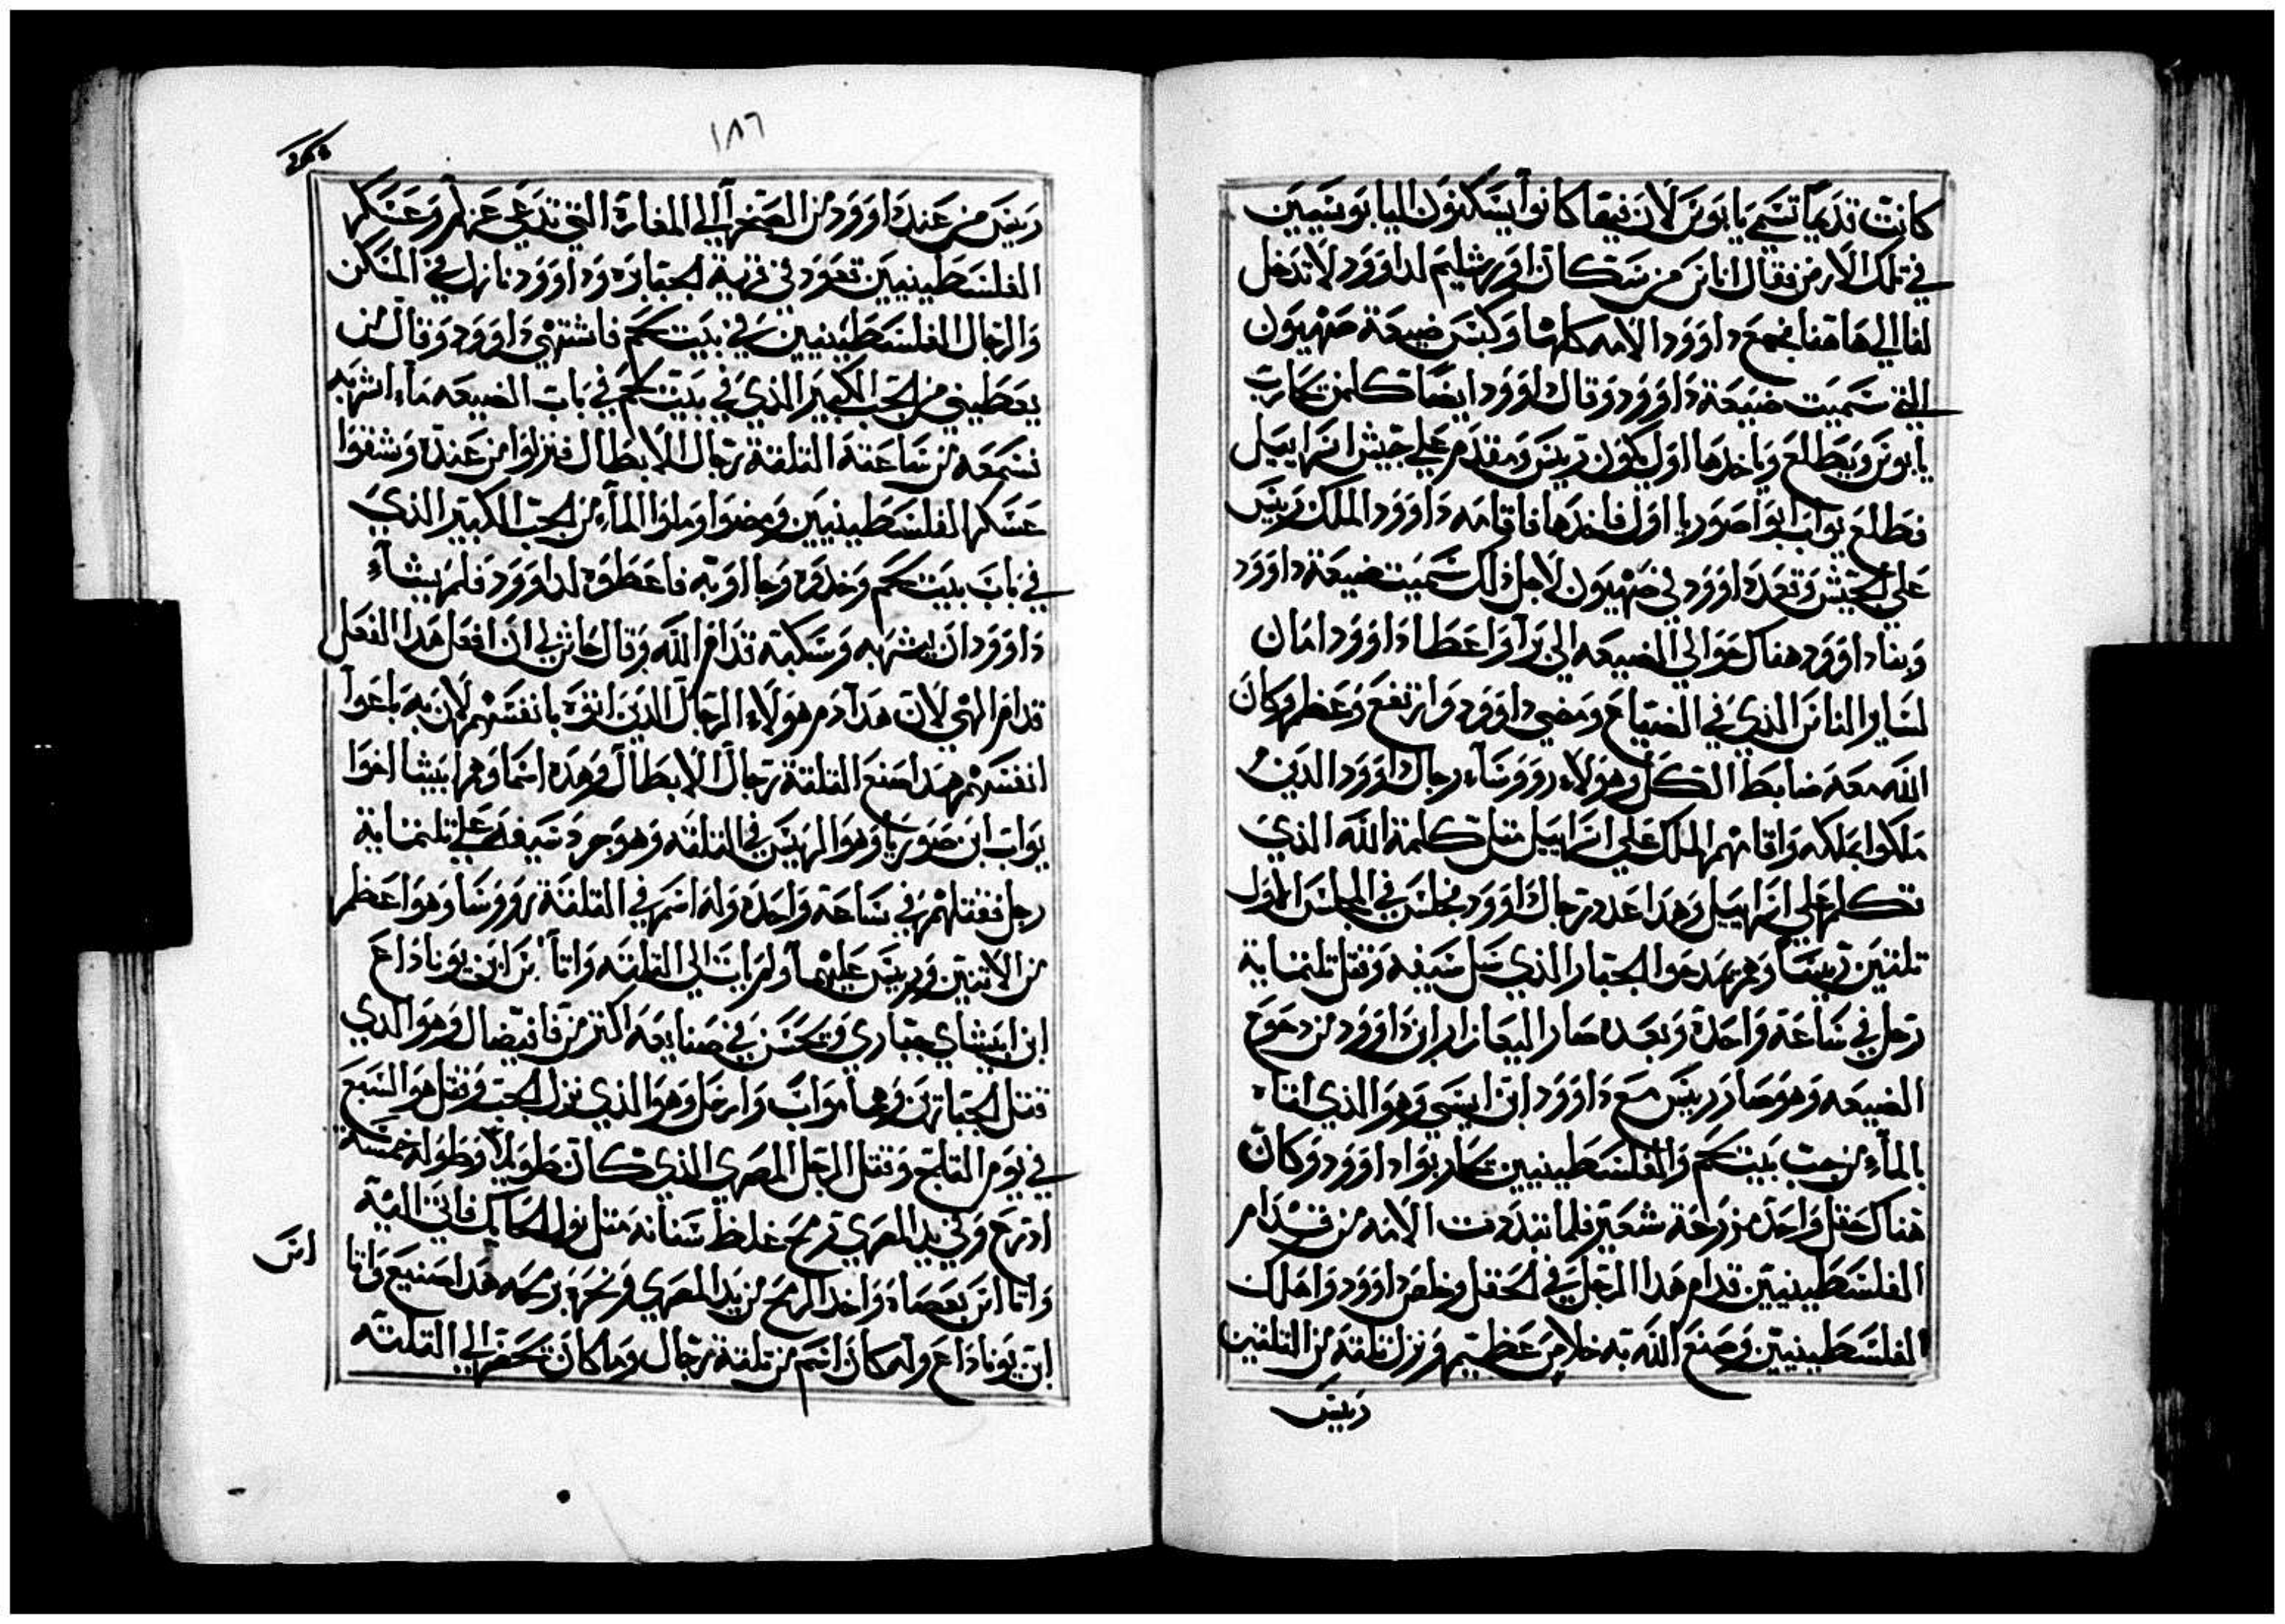 كانت قديما تسمي يابوس لان فيها كانوا يسكنون اليابوسيين
في تلك الارض فقال اناس من سكان اورشليم لداوود لا تدخل
لنا الي هاهنا فجمع داوود الامه كلها وكبس ضيعة صهيون
التي سميت ضيعة داوود وقال داوود ايضا كلمن يحارب
يابوس ويطلع وياخدها اول يكون رييس ومقدم علي جيش اسراييل
فطلع يواب ابو اصوريا اول فاخدها فاقامه داوود الملك رييس
علي الجيش وقعد داوود في صهيون لاجل ذلك سميت ضيعة داوود
وبنا داوود هناك حوالي الضيعه الي برا واعطا داوود امان
لساير الناس الذي في الضياع ومضي داوود وارتفع وعظم وكان
الله معه ضابط الكل وهولاء رووساء رجال داوود الدين
ملكوا بملكه واقامهم الملك علي اسراييل متل كلمة الله الذي
تكلم علي اسراييل وهدا عدد رجال داوود فجلس في المجلس الاول
تلتين رييسا وهم يمدحوا الجبار الذي سل سيفه وقتل تلتماية
رجل في ساعة واحدة وبعده صار اليعازار ابن داوود من دحوح
الضيعه وهو صار رييس مع داوود ابن ايسي وهو الذي اتاه
بالماء من جب بيت لحم والفلسطينيين يحاربوا داوود وكان
هناك حقل واحد مزروعة شعير فلما تبددت الامه من قدام
الفلسطينيين قدام هدا الرجل في الحقل وخلص داوود واهلك
الفلسطينيين وصنع الله به خلاص عظيم ونزل تلته من التلتين
رييس
١٨٦
رييس من عند داوود من الصخر الي المغارة التي تدعي عزلم وعسكر
الفلسطينيين قعود في قرية الجبابره وداوود نازل في المسكن
والرجال الفلسطينيين في بيت لحم فاشتهي داوود وقال من
يعطيني من الجب الكبير الذي في بيت لحم في باب الضيعه ماء اشربه
فسمعه من ساعته التلتة رجال الابطال فنزلوا من عنده وشقوا
عسكر الفلسطينيين ومضوا وملوا الماء من الجب الكبير الذي
في باب بيت لحم وخدوه وجااوا به فاعطوه لداوود فلم يشاء
داوود ان يشربه وسكبه قدام الله وقال حاش لي ان افعل هدا الفعل
قدام الهي لان هدا دم هولاء الرجال الدين اتوه بانفسهم لان به باعوا
انفسهم هدا صنع التلتة رجال الابطال وهده اسماوهم ابيشا اخوا
يواب ابن صوريا وهو الرييس في التلته وهو جرد سيفه علي تلتماية
رجل فقتلهم في ساعة واحدة وله اسم في التلتة رووسا وهو اعظم
من الاتنين ورييس عليهما ولم يات الي التلته واما ابن يوناداع
ابن ابيشاي جباري ويحسن في صنايعه اكتر من قانيصال وهو الدي
قتل الجبارين وهما مواب وارحل وهو الذي نزل الجب وقتل هو السبع
في يوم التلج وقتل الرجل المصري الذي كان طويلا وطوله خمسة
ادرع وفي يد المصري رمح غلظ سنانه متل نول الحايك فاتي اليه
واتا بعصاه واخد الرمح من يد المصري ونحره برمحه هدا صنيع
ابن يوناداع وله كان اسم من تلتة رجال وما كان يحضر الي التلته